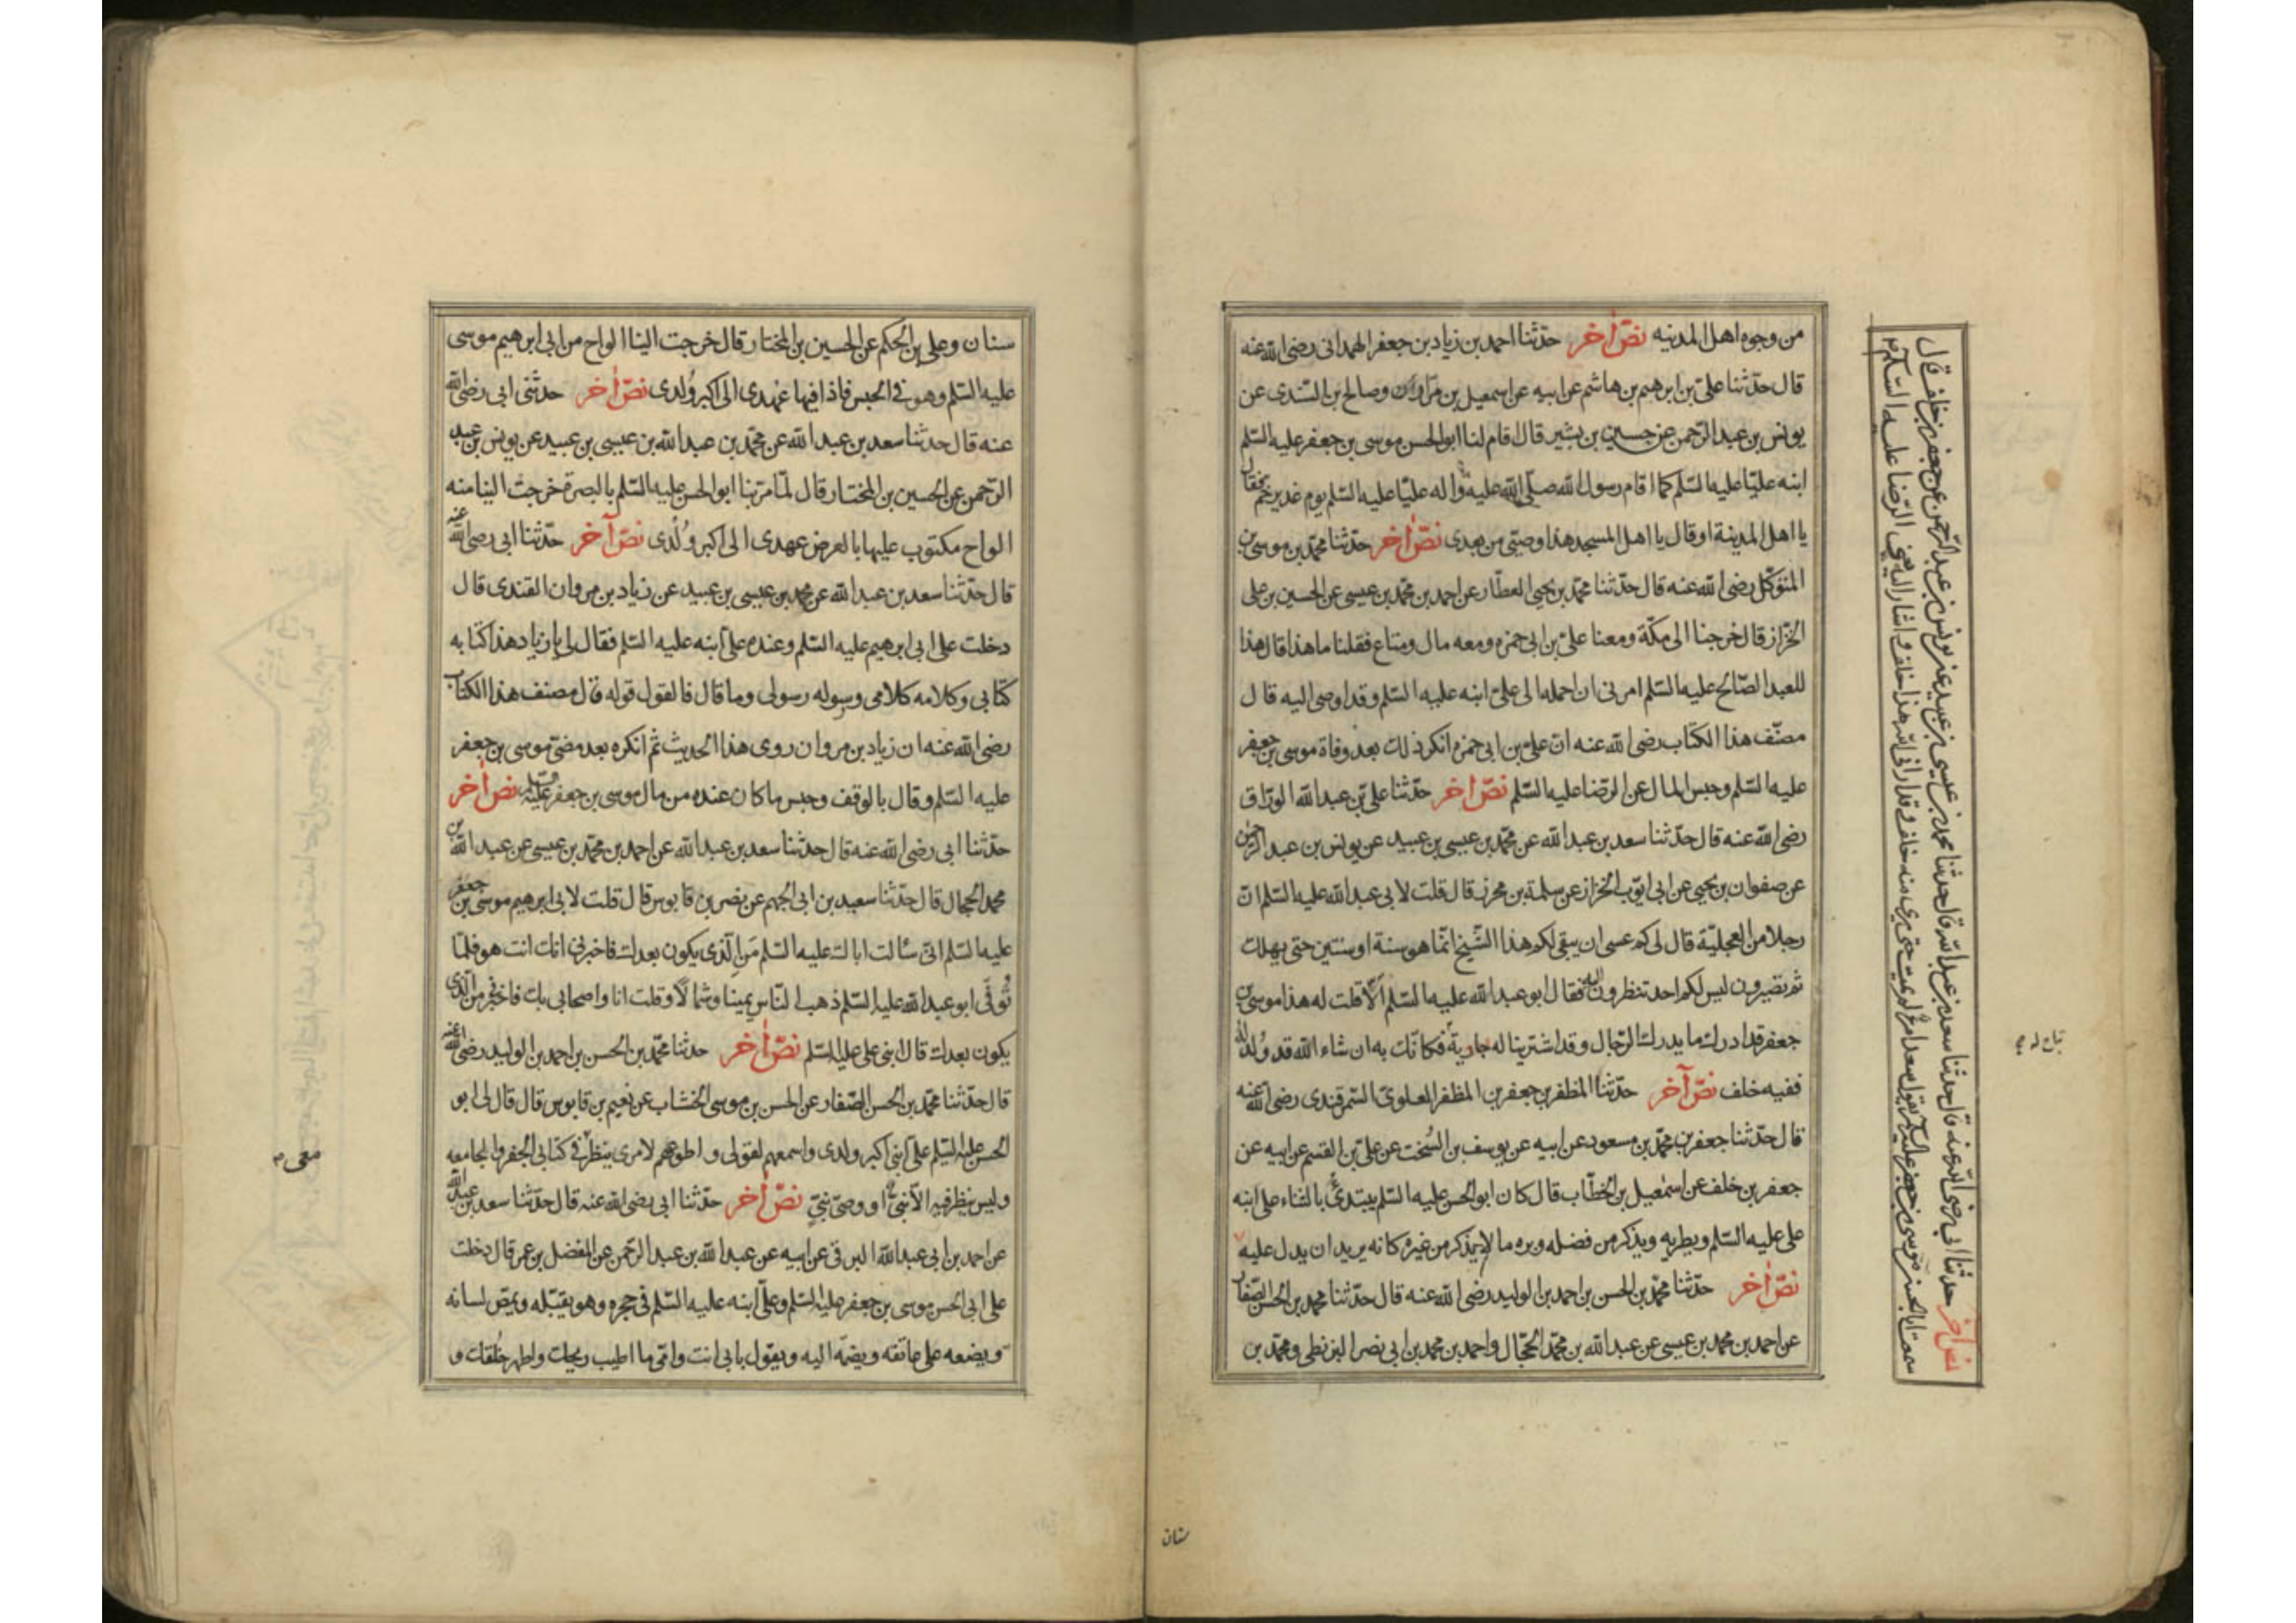 من وجوه اهل المدينه نصّ آخر حدّثنا احمد بن زياد بن جعفر الهمدانى رضى الله عنه
قال حدّثنا علىّ بن ابرهيم بن هاشم عن ابيه عن اسمعيل بن مرّار وصالح بن السّندى عن
يونس بن عبد الرّحمن عن حسين بن بشير قال قام لنا ابو الحسن موسى بن جعفر عليه السّلم
ابنه عليّا عليه السّلم كما اقام رسول الله صلّى الله عليه وآله عليّا عليه السّلم يوم غدير خمّ فقال
يا اهل المدينة او قال يا اهل المسجد هذا وصيّى من بعدى نصّ آخر حدّثنا محمّد بن موسى بن
المتوكّل رضى الله عنه قال حدّثنا محمّد بن يحيى العطّار عن احمد بن محمّد بن عيسى عن الحسين بن على
الخزّاز قال خرجنا الى مكّة ومعنا علىّ بن ابى حمزه ومعه مال ومتاع فقلنا ما هذا قال هذا
للعبد الصّالح عليه السّلم امرنى ان احمله الى علىّ ابنه عليه السّلم وقد اوصى اليه قال
مصنّف هذا الكتاب رضى الله عنه انّ علىّ بن ابى حمزه انكر ذلك بعد وفاة موسى بن جعفر
عليه السّلم وحبس المال عن الرّضا عليه السّلم نصّ آخر حدّثنا علىّ بن عبد الله الورّاق
رضى الله عنه قال حدّثنا سعد بن عبد الله عن محمّد بن عيسى بن عبيد عن يونس بن عبد الرحمن
عن صفوان بن يحيى عن ابى ايّوب الخزّاز عن سلمة بن محرز قال قلت لابى عبد الله عليه السّلم انّ
رجلا من العجليّة قال لى كم عسى ان يبقى لكم هذا الشّيخ انّما هو سنة او سنتين حتى يهلك
ثم تصيرون ليس لكم احد تنظرون اليه فقال ابو عبد الله عليه السّلم ألّا قلت له هذا موسى بن
جعفر قد ادرك ما يدرك الرّجال وقد اشترينا له جارية فكانّك به ان شاء الله قد وُلد له
ففيه خلف نصّ آخر حدّثنا المظفر بن جعفر بن المظفر العلوىّ السّمرقندى رضى الله عنه
قال حدّثنا جعفر بن محمّد بن مسعود عن ابيه عن يوسف بن السُّخت عن علىّ بن القسم عن ابيه عن
جعفر بن خلف عن اسمعيل بن الخطّاب قال كان ابو الحسن عليه السّلم يبتدئ بالثناء على ابنه
على عليه السّلم ويطريه ويذكر من فضله وبره ما لا يذكر من غيره كانه يريد ان يدل عليه
نصّ آخر حدّثنا محمّد بن الحسن بن احمد بن الوليد رضى الله عنه قال حدّثنا محمد بن الحسن الصّفار
عن احمد بن محمد بن عيسى عن عبد الله بن محمّد الحجّال واحمد بن محمد بن ابى نصر البزنطى ومحمّد بن
نص آخر حدثنا ابى رضى الله عنه قال حدثنا سعد بن عبد الله قال حدثنا محمد بن عيسى بن عبيد عن يونس بن عبد الرحمن عن جعفر بن خلف قال
سمعت ابا الحسن موسى بن جعفر عليه السلم يقول سعد امرؤ لم يمت حتى يرى منه خلف وقد ارانى الله هذا خلف واشار اليه يعنى الرّضا عليه السّلم
سنان
سنان وعلى بن الحكم عن الحسين بن المختار قال خرجت الينا الواح من ابى ابرهيم موسى
عليه السّلم وهو فى الحبس فاذا فيها عهدى الى اكبر وُلدى نصّ آخر حدّثنى ابى رضى الله
عنه قال حدثنا سعد بن عبد الله عن محمّد بن عبد الله بن عيسى بن عبيد عن يونس بن عبد
الرّحمن عن الحسين بن المختار قال لمّا مرّ بنا ابو الحسن عليه السّلم بالبصرة خرجت الينا منه
الواح مكتوب عليها بالعرض عهدى الى اكبر وُلْدى نصّ آخر حدّثنا ابى رضى الله عنه
قال حدّثنا سعد بن عبد الله عن محمد بن عيسى بن عبيد عن زياد بن مروان القندى قال
دخلت على ابى ابرهيم عليه السّلم وعنده علىّ ابنه عليه السّلم فقال لى يا زياد هذا كتابه
كتابى وكلامه كلامى ورسوله رسولى وما قال فالقول قوله قال مصنف هذا الكتاب
رضى الله عنه ان زياد بن مروان روى هذا الحديث ثم انكره بعد مضىّ موسى بن جعفر
عليه السّلم وقال بالوقف وحبس ما كان عنده من مال موسى بن جعفر عليه السلم نصّ آخر
حدّثنا ابى رضى الله عنه قال حدّثنا سعد بن عبد الله عن احمد بن محمّد بن عيسى عن عبد الله بن
محمد الحجال قال حدّثنا سعيد بن ابى الجهم عن نصر بن قابوس قال قلت لابى ابرهيم موسى بن جعفر
عليه السّلم انّى سألت اباك عليه السّلم مَن الّذى يكون بعدك فاخبرنى انك انت هو فلمّا
تُوفّى ابو عبد الله عليه السّلم ذهب النّاس يمينا وشمالًا وقلت انا واصحابى بك فاخبرنى من الّذى
يكون بعدك قال ابنى على عليه السّلم نصّ آخر حدثنا محمّد بن الحسن بن احمد بن الوليد رضى الله عنه
قال حدّثنا محمّد بن الحسن الصّفار عن الحسن بن موسى الخشاب عن نعيم بن قابوس قال قال لى ابو
الحسن عليه السّلم علىّ ابنى اكبر ولدى واسمعهم لقولى واطوعهم لامرى ينظر فى كتابى الجفر والجامعه
وليس ينظر فيه الّا نبىّ او وصىّ نبىّ نصّ آخر حدّثنا ابى رضى الله عنه قال حدّثنا سعد بن عبد الله
عن احمد بن ابى عبد الله البرقى عن ابيه عن عبد الله بن عبد الرّحمن عن المفضل بن عمر قال دخلت
على ابى الحسن موسى بن جعفر عليه السّلم وعلىّ ابنه عليه السّلم فى حجره وهو يقبّله ويمصّ لسانه
ويضعه على عاتقه ويضمّه اليه ويقول بابى انت وامّى ما اطيب ريحك واطهر خُلقك و